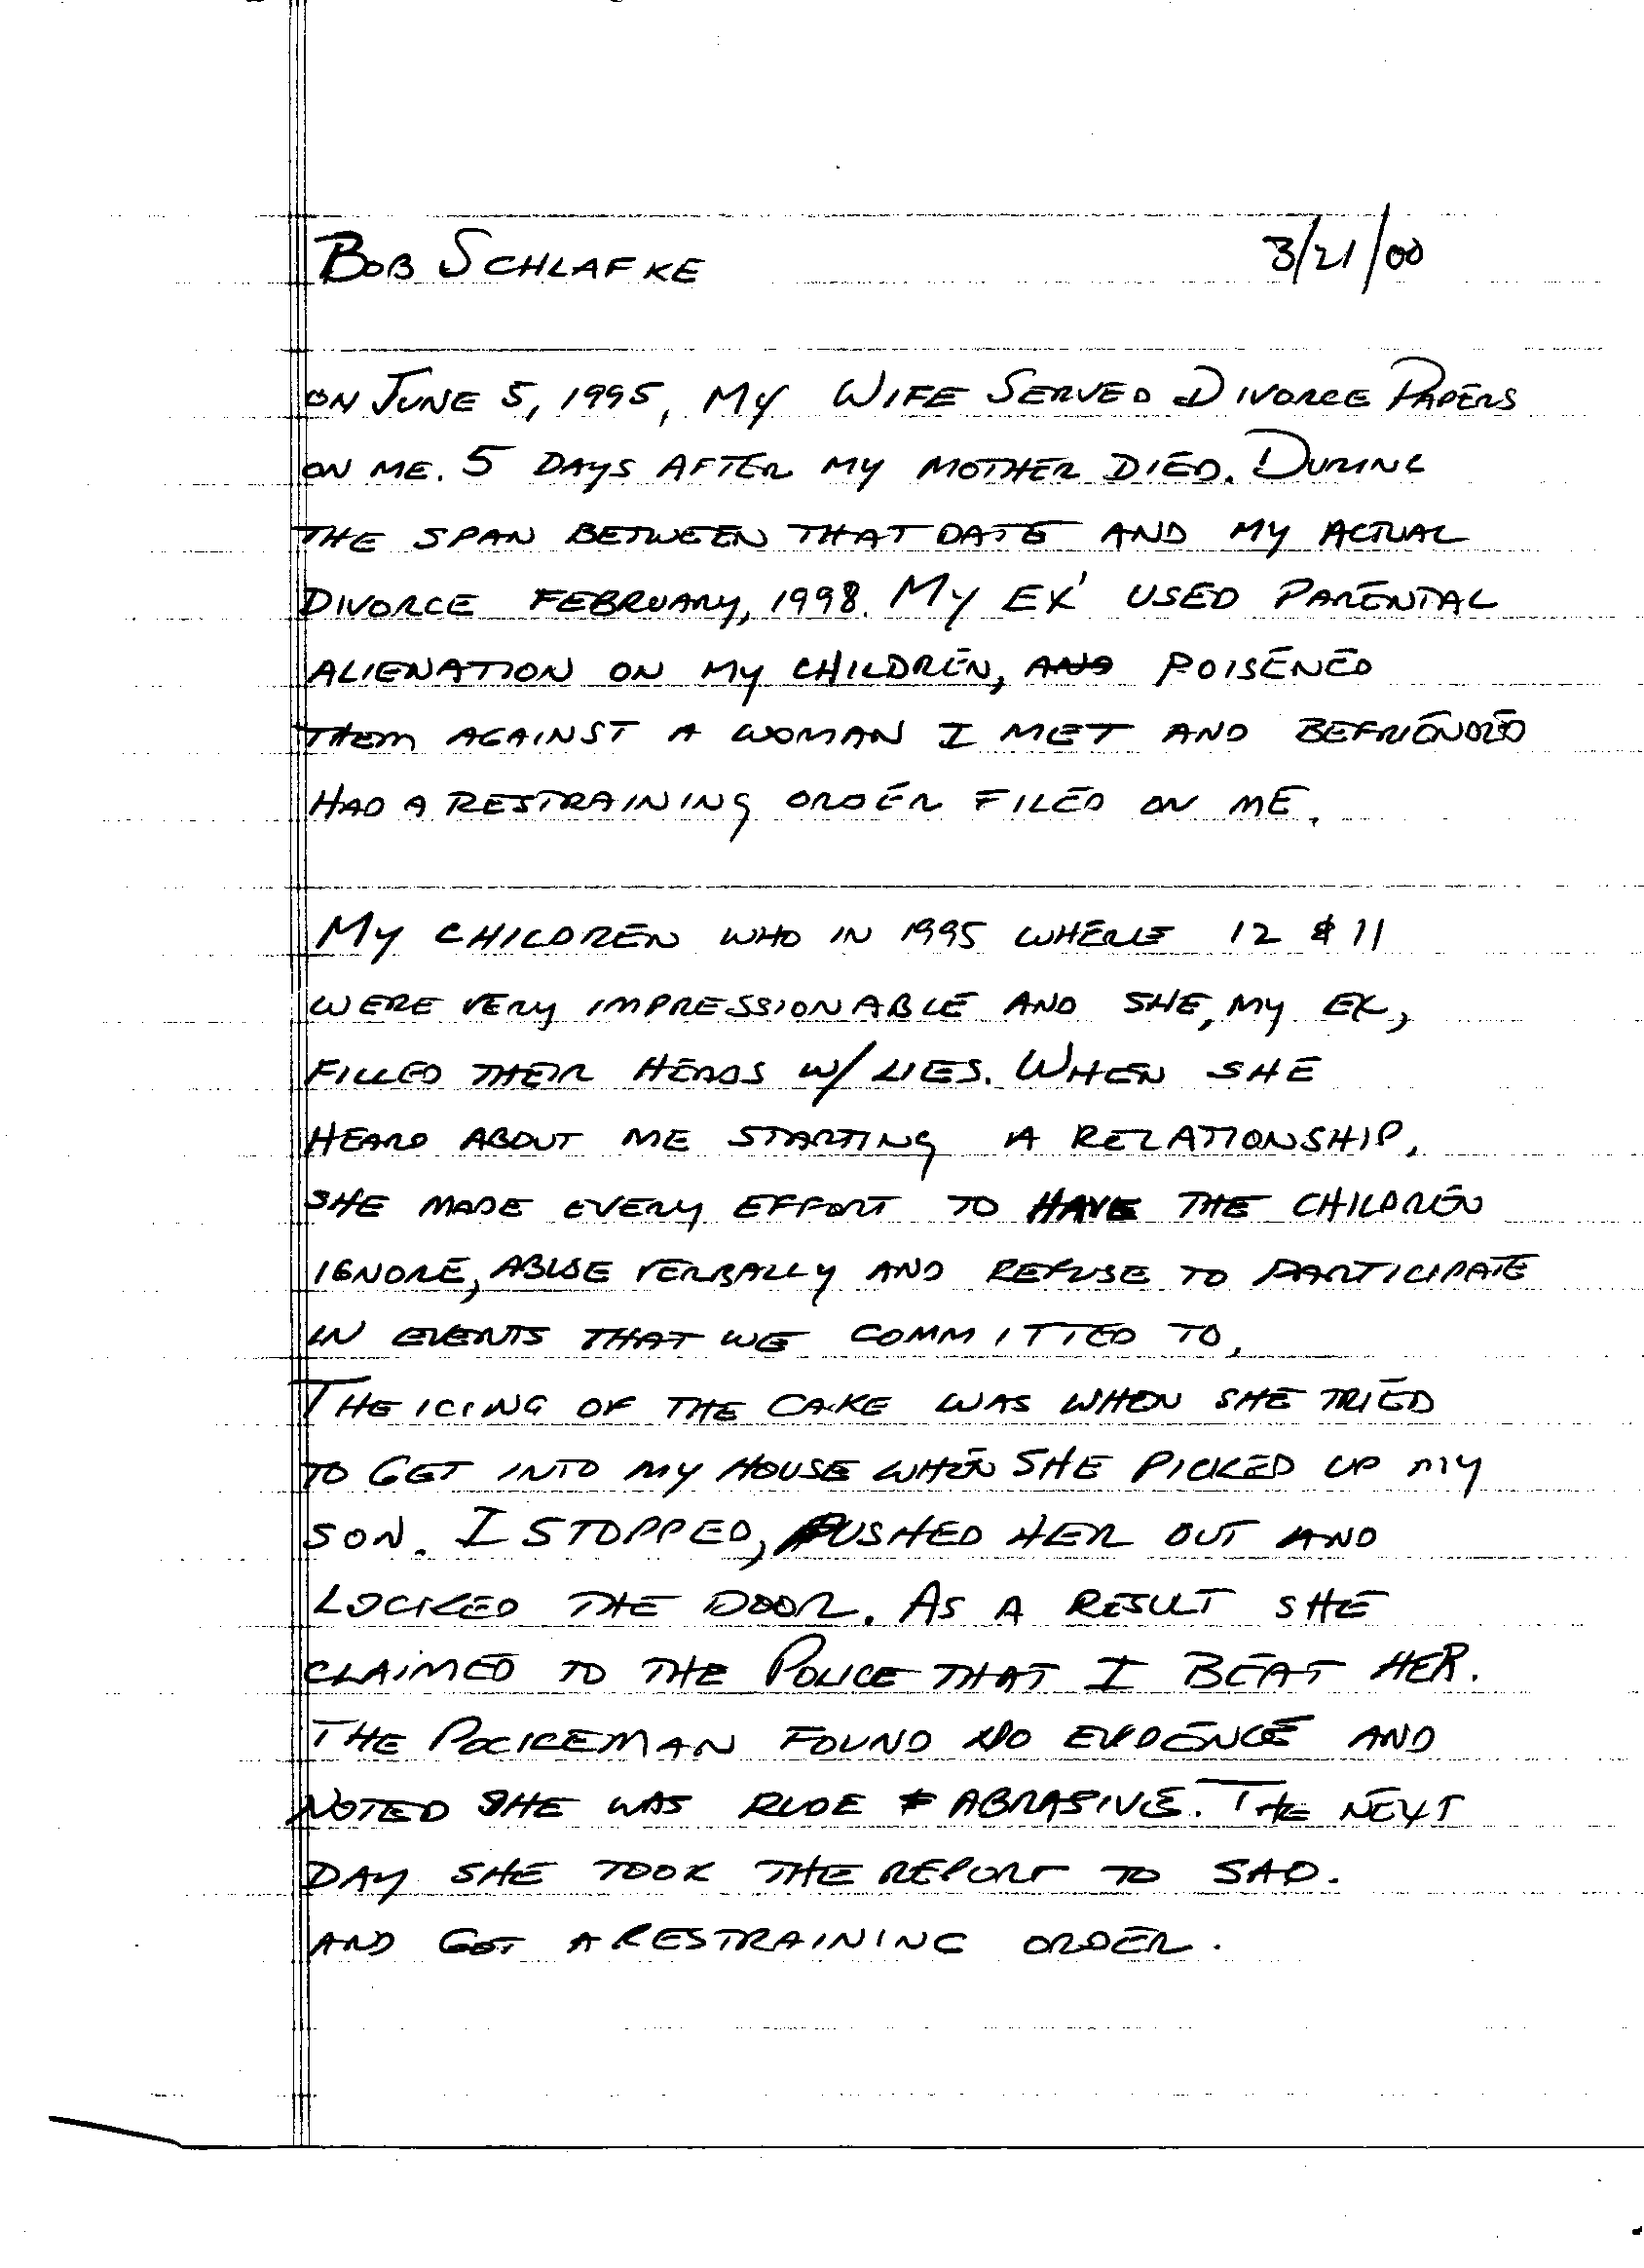 BOB SCHLAFKE 3/21/00
ON JUNE 5, 1995, MY WIFE SERVED DIVORCE PAPERS
ON ME. 5 DAYS AFTER MY MOTHER DIED. DURING
THE SPAN BETWEEN THAT DATE AND MY ACTUAL
DIVORCE FEBRUARY, 1998. MY EX' USED PARENTAL
ALIENATION ON MY CHILDREN, AND POISENED
THEM AGAINST A WOMAN I MET AND BEFRIENDED
HAD A RESTRAINING ORDER FILED ON ME.
MY CHILDREN WHO IN 1995 WHERE 12 & 11
WERE VERY IMPRESSIONABLE AND SHE, MY EX,
FILLED THEIR HEADS W/ LIES. WHEN SHE
HEARD ABOUT ME STARTING A RELATIONSHIP,
SHE MADE EVERY EFFORT TO HAVE THE CHILDREN
IGNORE, ABUSE VERBALLY AND REFUSE TO PARTICIPATE
IN EVENTS THAT WE COMMITTED TO,
THE ICING OF THE CAKE WAS WHEN SHE TRIED
TO GET INTO MY HOUSE WHEN SHE PICKED UP MY
SON. I STOPPED, PUSHED HER OUT AND
LOCKED THE DOOR. AS A RESULT SHE
CLAIMED TO THE POLICE THAT I BEAT HER.
THE POLICEMAN FOUND NO EVIDENCE AND
NOTED SHE WAS RUDE & ABRASIVE. THE NEXT
DAY SHE TOOK THE REPORT TO SAD.
AND GOT A RESTRAINING ORDER.